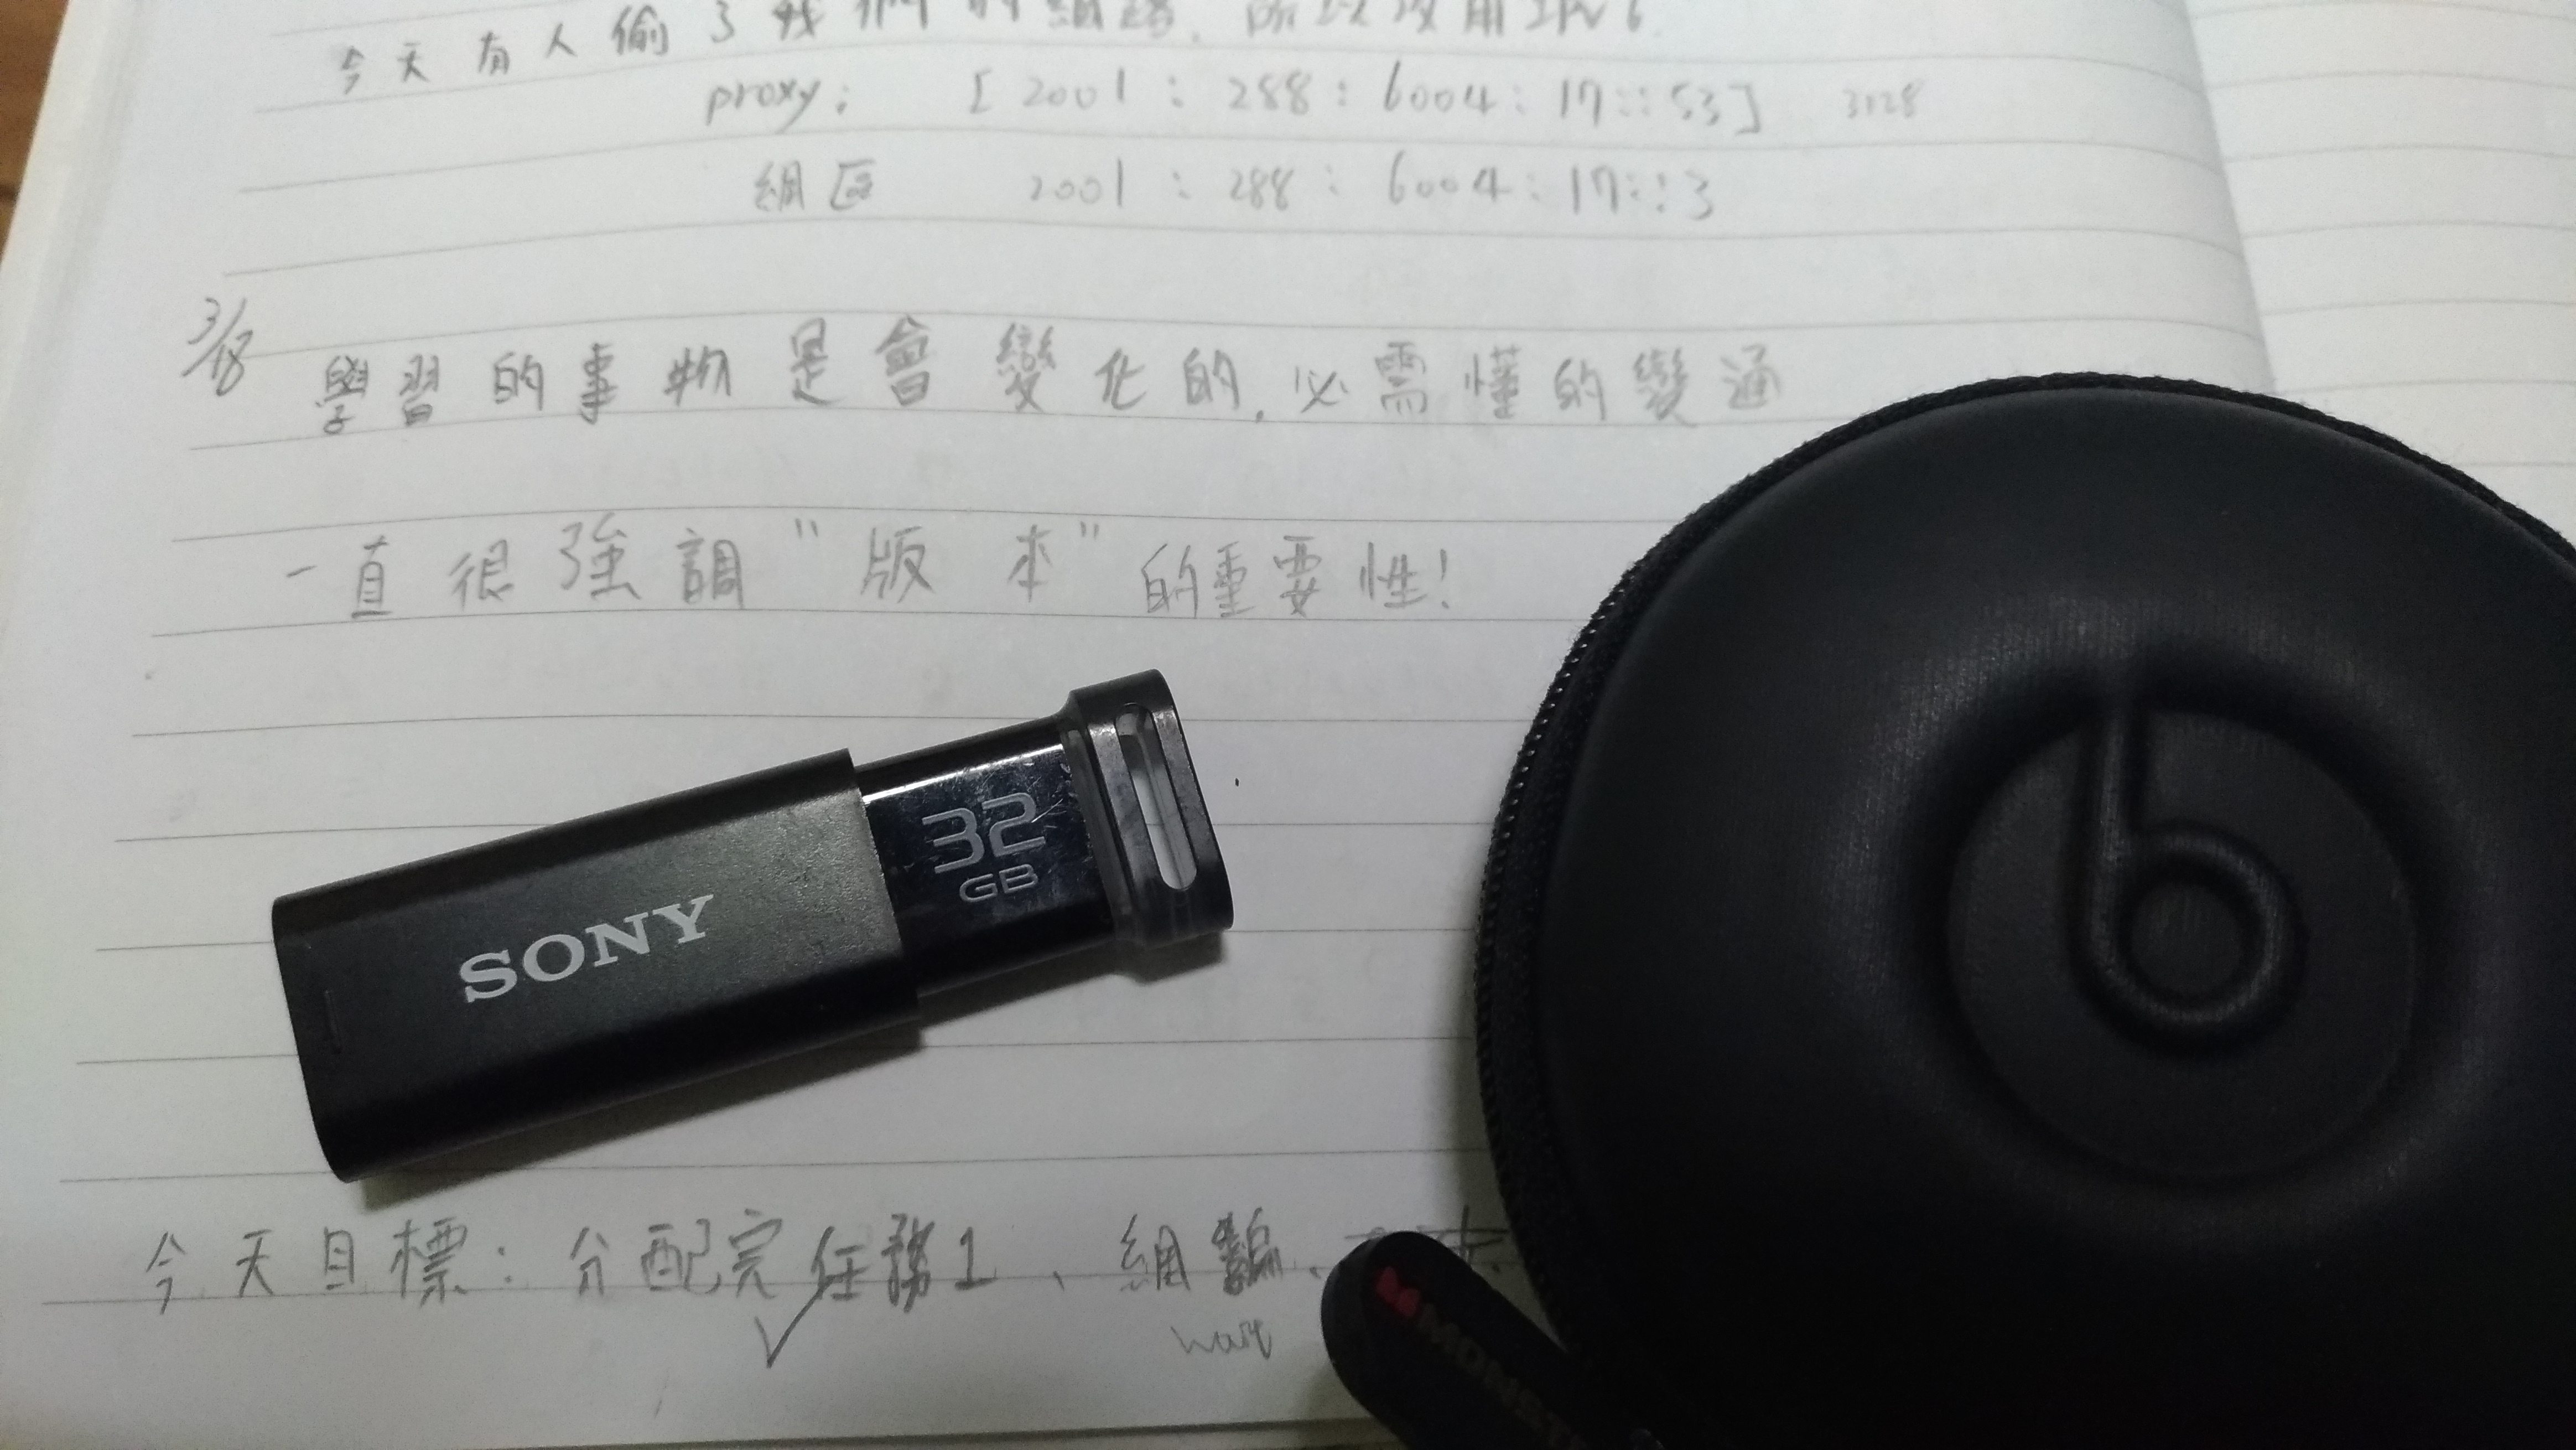 今天有人偷了我們的網路,所以改用IPv6
proxy: [2001:288:6004:17::53] 3128
網區 2001:288:6004:17::3
3/18
學習的事物是會變化的,必需懂的變通
一直很強調"版本"的重要性!
SONY
32
GB
b
今天目標:分配完任務1、網
wait
MONST